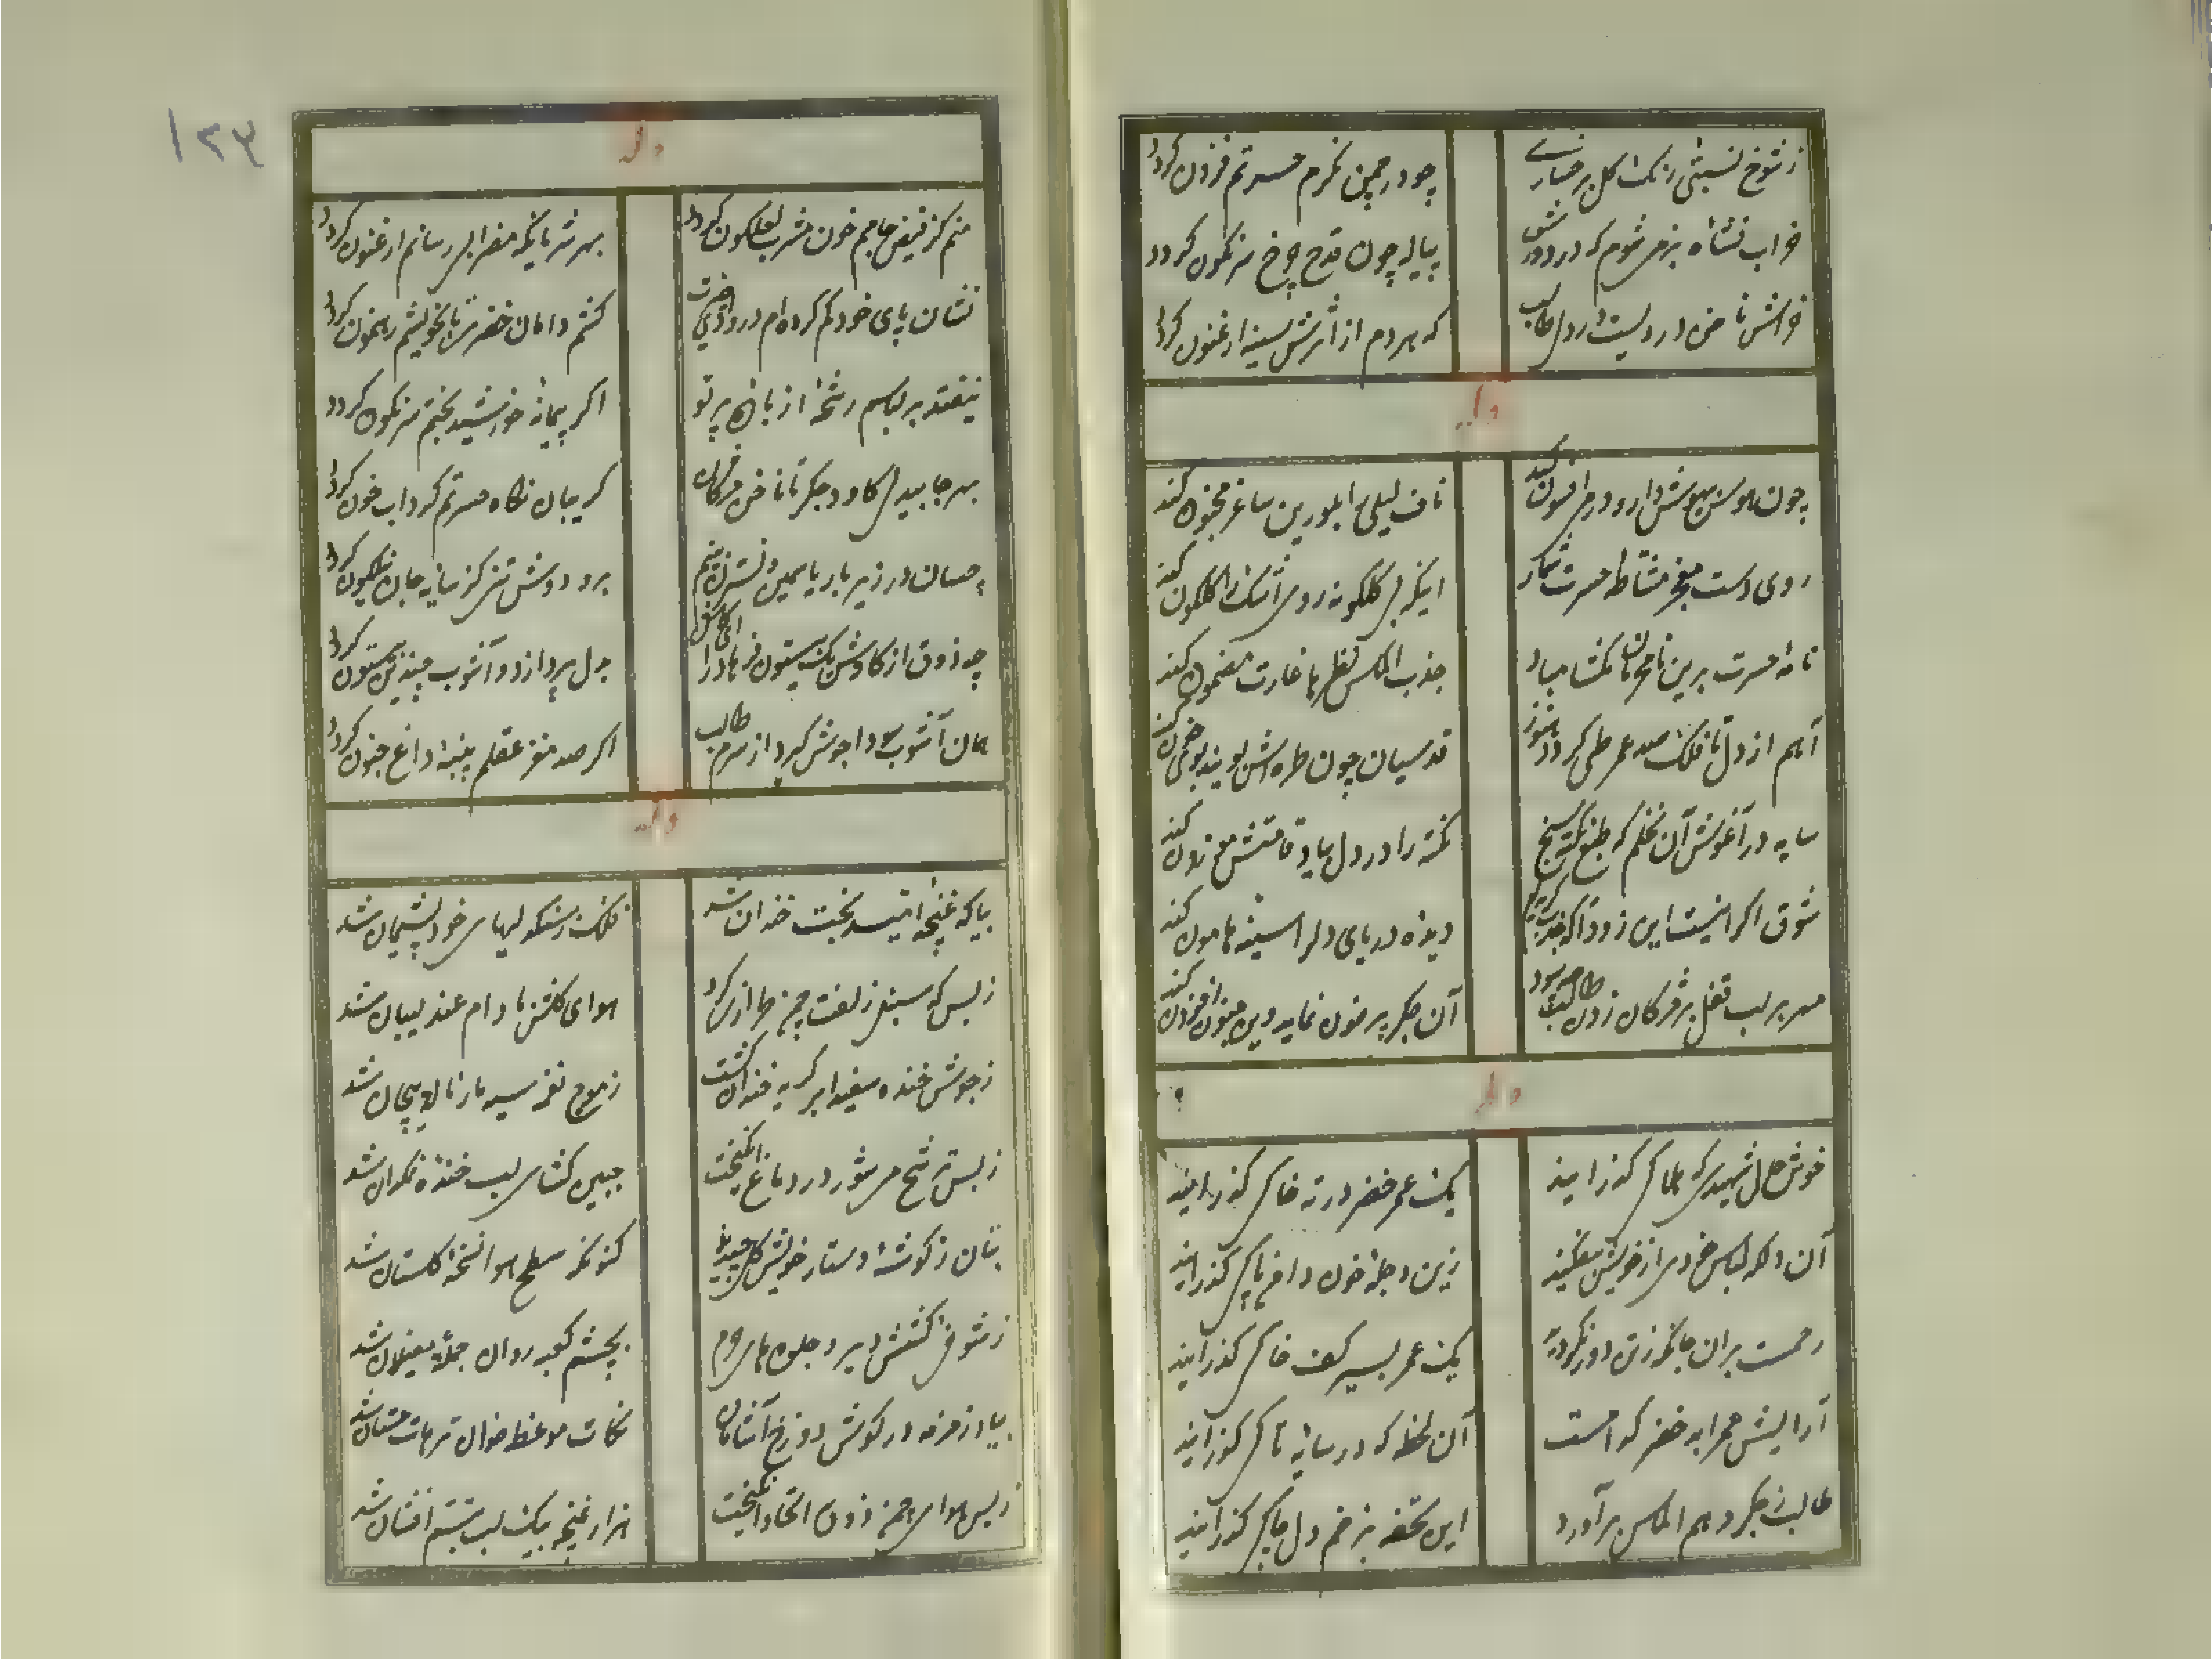 ز شوخ نسبتی رنگ گل برخساری
چو در چمن نگرم حسرتم فزون گردد
خراب نشاه بزمی شوم که در دورش
پیاله چون قدح چرخ سرنگون گردد
خراش ناخن دردیست در دل طالب
که هر دم از اثرش سینه ارغنون گردد
وله
چون هوس بیهوش دارو در می افسون کند
ناف لیلی را بلورین ساغر مجنون کند
روی دست مشاطه حسرت نگار
اینکه بی گلگونه روی اشک را گلگون کند
نامه حسرت برین نامحرمان مگشا مباد
جذب الماس نظرها غارت مضمون کند
آهم از دل تا فلک صد عمر طی گردد هنوز
قدسیان چون طره اش بویند بوی خون کند
سایه در آغوش آن نخلم که طبع نکته سنج
نکته را در دل بیاد قامتش موزون کند
شوق اگر اینست این زودا که
دیده دریای دلرا سینه هامون کند
مهر بر لب قفل بر مژگان زدن طالب چه سود
آن جگر پر خون نماید وین جنون افزون کند
وله
خوش حال شهیدی که هلاکی گذرانید
یک عمر خضر در ته خاکی گذرانید
آن دل که لباس خودی از خویش بیفکند
زین دجله خون دامن پاکی گذرانید
رحمت بر آن جا که ز تن دور نکردند
یک عمر بسر کف خاکی گذرانید
آرایش محرابه خضر کو است
آن لحظه که در سایه تاکی گذرانید
طالب ز جگر دهم الماس برآورد
این تحفه بزخم دل چاکی گذرانید
۱۲۳
وله
منم کز فیض جامم خون مشرب لعلگون گردد
بهر شریانکه مضرابی رسانم ارغنون گردد
نشان پای خود گم کرده ام در وادی حیرت
کشم دامان خضری تا بخویشم رهنمون گردد
نیفتد بر لباسم رشحه از باده پرتو
اگر پیمانه خورشید بختم سرنگون گردد
بهر جا بیدلی کاود جگر تا ناخن مژگان
گریبان نگاه حسرتم گرداب خون گردد
چسان در زیر بار یاسمین و نسترن بینم
بر و دوشی تنی کز سایه جان نیلگون گردد
چه ذوق از کاوش یک بیستون فرهاد را ای عشق
بدل پردازد و آشوب چندین بیستون گردد
همان آشوب سودا جوش گیرد از سرم طالب
اگر صد مغز عقلم پنبه داغ جنون گردد
وله
بیا که غنچه امید بخت خندان شد
فلک ز سنگدلیهای خود پشیمان شد
ز بس که سنبل زلفت چمن طرازی کرد
هوای گلشن ما دام عندلیبان شد
ز جوش خنده سفید ابر گریه خندان گشت
ز موج نغمه سیه مار ناله پیچان شد
ز بس ترشح می شور در دماغ انگیخت
جبین گشای لب خنده نمکدان شد
بتان ز گوشه دستار خویش گل چیدند
کنونکه سطح هوا نسخه گلستان شد
ز شوق کشش دیر و جلوه های حرم
بچشم کعبه روان جمله مغیلان شد
بیاد زمزمه در گوش دوزخ آشامان
نکات موعظه خوان ترهات مستان شد
ز بس هوای چمن ذوق اتحاد انگیخت
هزار غنچه بیک لب تبسم افشان شد